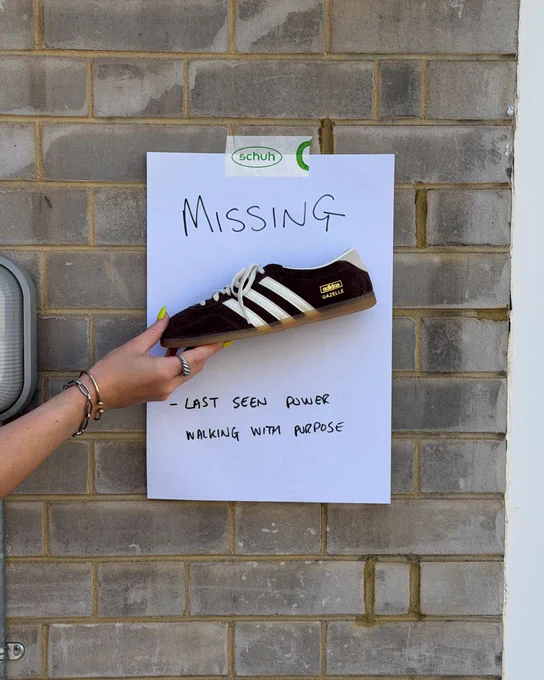 schuh
MISSING
adidas
GAZELLE
- LAST SEEN POWER
WALKING WITH PURPOSE